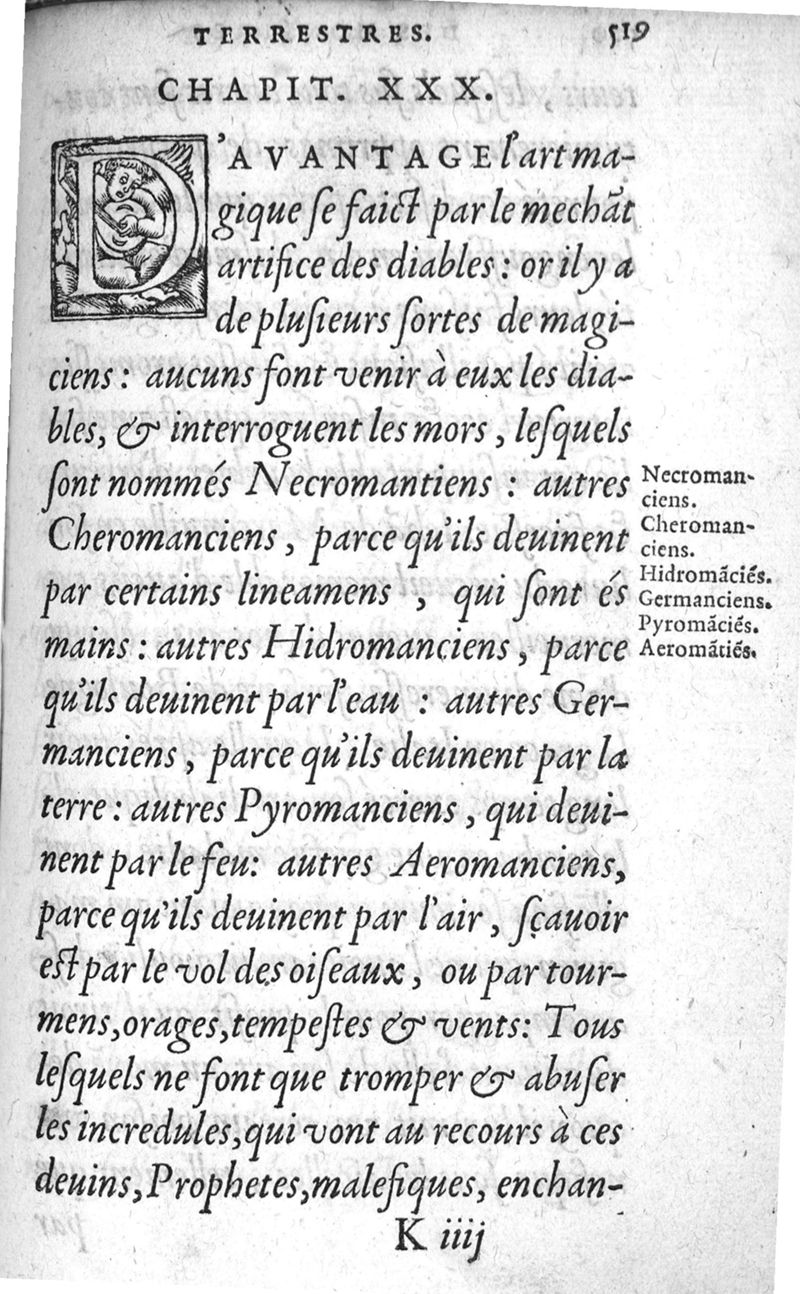 TERRESTRES. 519
CHAPIT. XXX.
D'AVANTAGE l'art ma-
gique ſe faict par le mechãt
artifice des diables : or il y a
de pluſieurs ſortes de magi-
ciens : aucuns font venir à eux les dia-
bles, & interroguent les mors, leſquels
ſont nommés Necromantiens : autres
Cheromanciens, parce qu'ils deuinent
par certains lineamens , qui ſont és
mains : autres Hidromanciens, parce
qu'ils deuinent par l'eau : autres Ger-
manciens, parce qu'ils deuinent par la
terre : autres Pyromanciens, qui deui-
nent par le feu: autres Aeromanciens,
parce qu'ils deuinent par l'air, ſçauoir
eſt par le vol des oiſeaux, ou par tour-
mens, orages, tempeſtes & vents: Tous
leſquels ne font que tromper & abuſer
les incredules, qui vont au recours à ces
deuins, Prophetes, malefiques, enchan-
K iiij
Necroman-
ciens.
Cheroman-
ciens.
Hidromãciés.
Germanciens.
Pyromãciés.
Aeromãtiés.